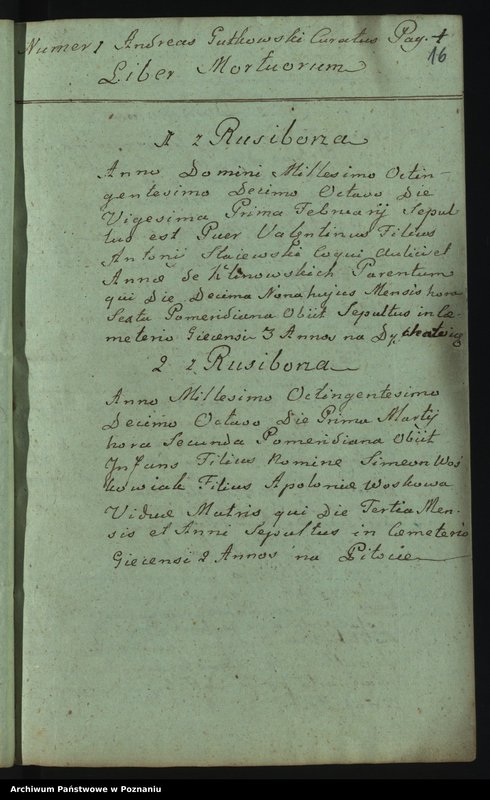 Numer 1 Andreas Gutkowski Curatus Pag. 4
16
Liber Mortuorum
1 z Rusiborza
Anno Domini Millesimo Octin-
gentesimo Decimo Octavo Die
Vigesima Prima Februarij Sepul
tus est Puer Valentinus Filius
Antonij Staiewski Coqui Aulici et
Annæ de Klinowskich Parentum
qui Die Decima Nona hujus Mensis hora
Sexta Pomeridiana Obiit Sepultus in Ce-
meterio Giecensi 3 Annos na Dy
2 z Rusiborza
Anno Millesimo Octingentesimo
Decimo Octavo Die Prima Martij
hora Secunda Pomeridiana Obiit
Infans Filius Nomine Simeon Woś
kowiak Filius Apoloniæ Woskowa
Viduæ Matris qui Die Tertia Men-
sis et Anni Sepultus in Cemeterio
Giecensi 2 Annos na
Archiwum Państwowe w Poznaniu